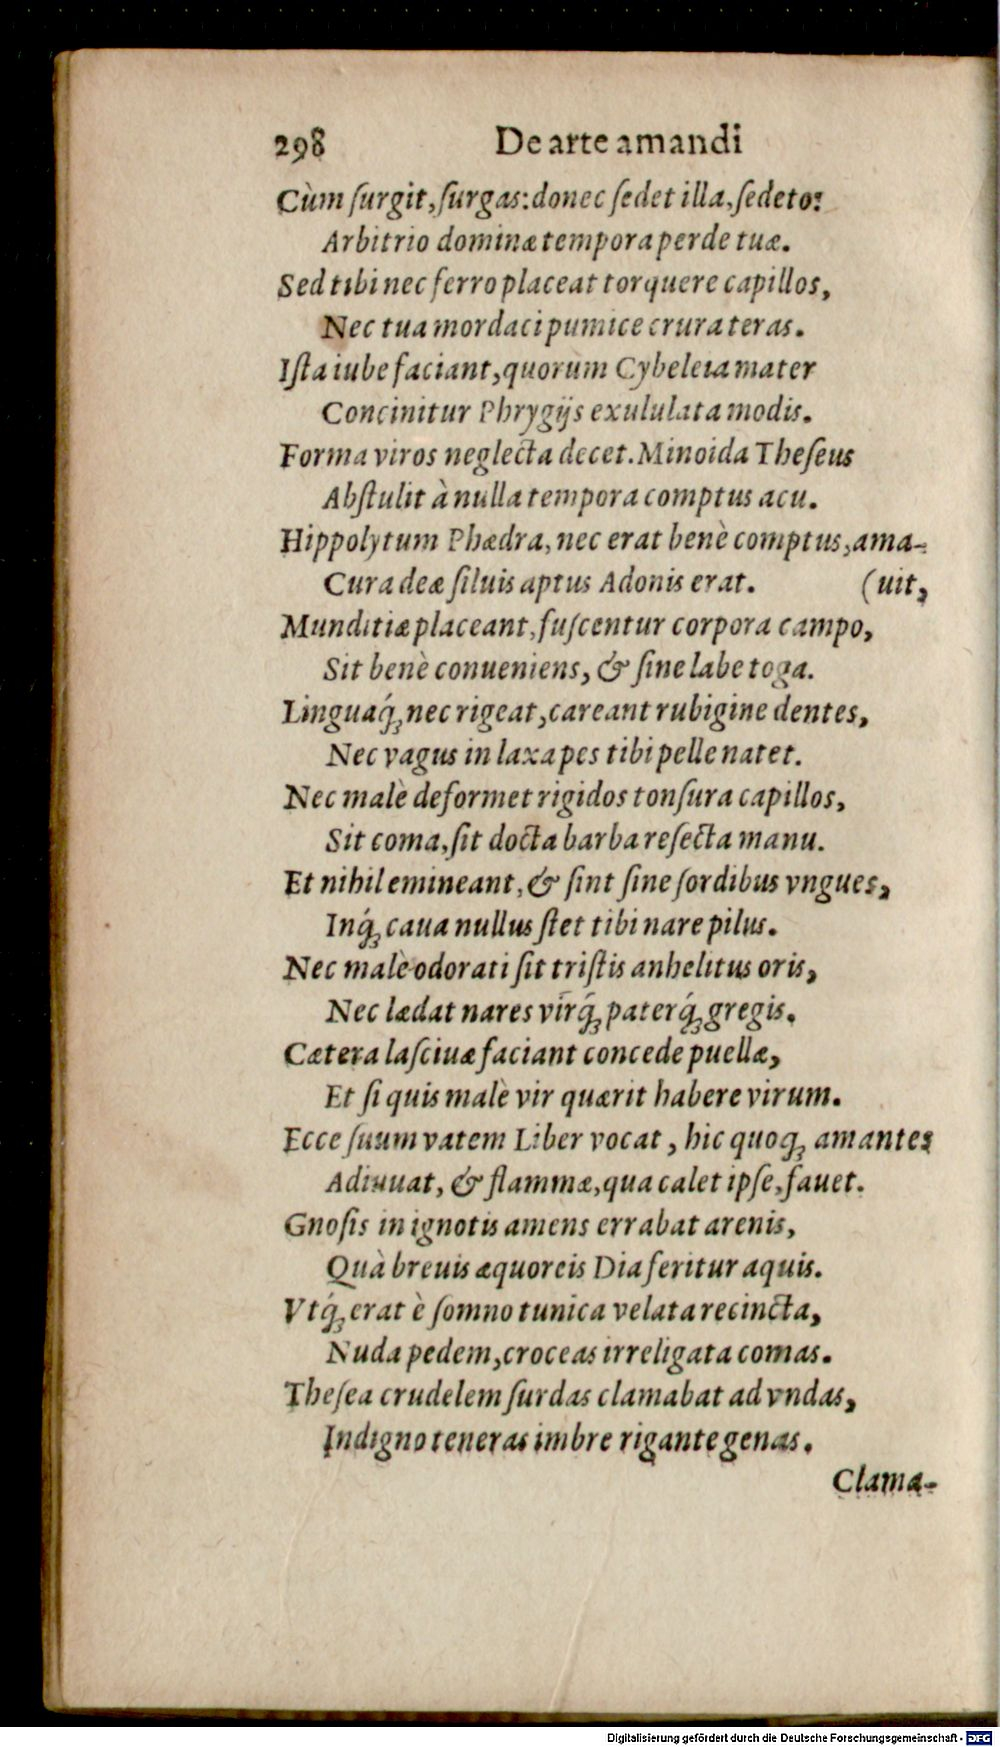 298 De arte amandi
Cùm ſurgit, ſurgas: donec ſedet illa, ſedeto:
Arbitrio dominæ tempora perde tuæ.
Sed tibi nec ferro placeat torquere capillos,
Nec tua mordaci pumice crura teras.
Iſta iube faciant, quorum Cybeleia mater
Concinitur Phrygijs exululata modis.
Forma viros neglecta decet. Minoida Theſeus
Abſtulit à nulla tempora comptus acu.
Hippolytum Phædra, nec erat benè comptus, ama-
Cura deæ ſiluis aptus Adonis erat. (uit,
Munditiæ placeant, fuſcentur corpora campo,
Sit benè conueniens, & ſine labe toga.
Linguaq́; nec rigeat, careant rubigine dentes,
Nec vagus in laxa pes tibi pelle natet.
Nec malè deformet rigidos tonſura capillos,
Sit coma, ſit docta barba reſecta manu.
Et nihil emineant, & ſint ſine ſordibus vngues,
Inq́; caua nullus ſtet tibi nare pilus.
Nec malè odorati ſit triſtis anhelitus oris,
Nec lædat nares virq́; paterq́; gregis.
Cætera laſciuæ faciant concede puellæ,
Et ſi quis malè vir quærit habere virum.
Ecce ſuum vatem Liber vocat, hic quoq; amantes
Adiuuat, & flammæ, qua calet ipſe, fauet.
Gnoſis in ignotis amens errabat arenis,
Quà breuis æquoreis Dia feritur aquis.
Vtq́; erat è ſomno tunica velata recincta,
Nuda pedem, croceas irreligata comas.
Theſea crudelem ſurdas clamabat ad vndas,
Indigno teneras imbre rigante genas.
Clama-
Digitalisierung gefördert durch die Deutsche Forschungsgemeinschaft - DFG